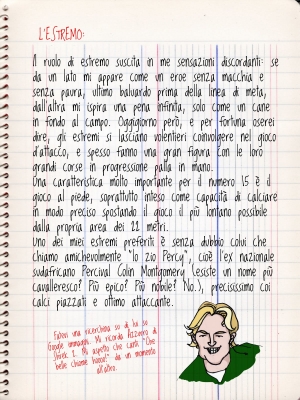 L'ESTREMO:
Il ruolo di estremo suscita in me sensazioni discordanti: se
da un lato mi appare come un eroe senza macchia e
senza paura, ultimo baluardo prima della linea di meta,
dall'altra mi ispira una pena infinita, solo come un cane
in fondo al campo. Oggigiorno però, e per fortuna oserei
dire, gli estremi si lasciano volentieri coinvolgere nel gioco
d'attacco, e spesso fanno una gran figura con le loro
grandi corse in progressione palla in mano.
Una caratteristica molto importante per il numero 15 è il
gioco al piede, soprattutto inteso come capacità di calciare
in modo preciso spostando il gioco il più lontano possibile
dalla propria area dei 22 metri.
Uno dei miei estremi preferiti è senza dubbio colui che
chiamo amichevolmente "lo zio Percy", cioè l'ex nazionale
sudafricano Percival Colin Montgomery (esiste un nome più
cavalleresco? Più epico? Più nobile? No.), precisissimo coi
calci piazzati e ottimo attaccante.
Fatevi una ricerchina su di lui su
Google immagini. Mi ricorda Azzurro di
Shrek 2. Mi aspetto che canti "Che
belle chiome bionde" da un momento
all'altro.